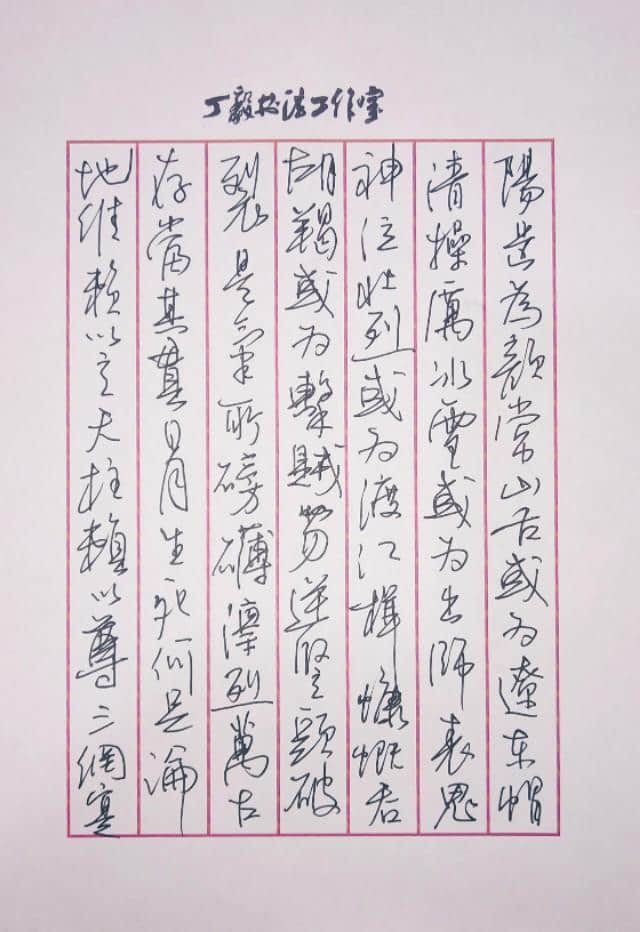 丁毅书法工作室
陽齒為顏常山舌或為遼東帽
清操厲冰雪或為出師表鬼
神泣壯烈或為渡江楫慷慨吞
胡羯或為擊賊笏逆豎頭破
裂是氣所磅礴凜烈萬古
存當其貫日月生死何足論
地維賴以立天柱賴以尊三綱實